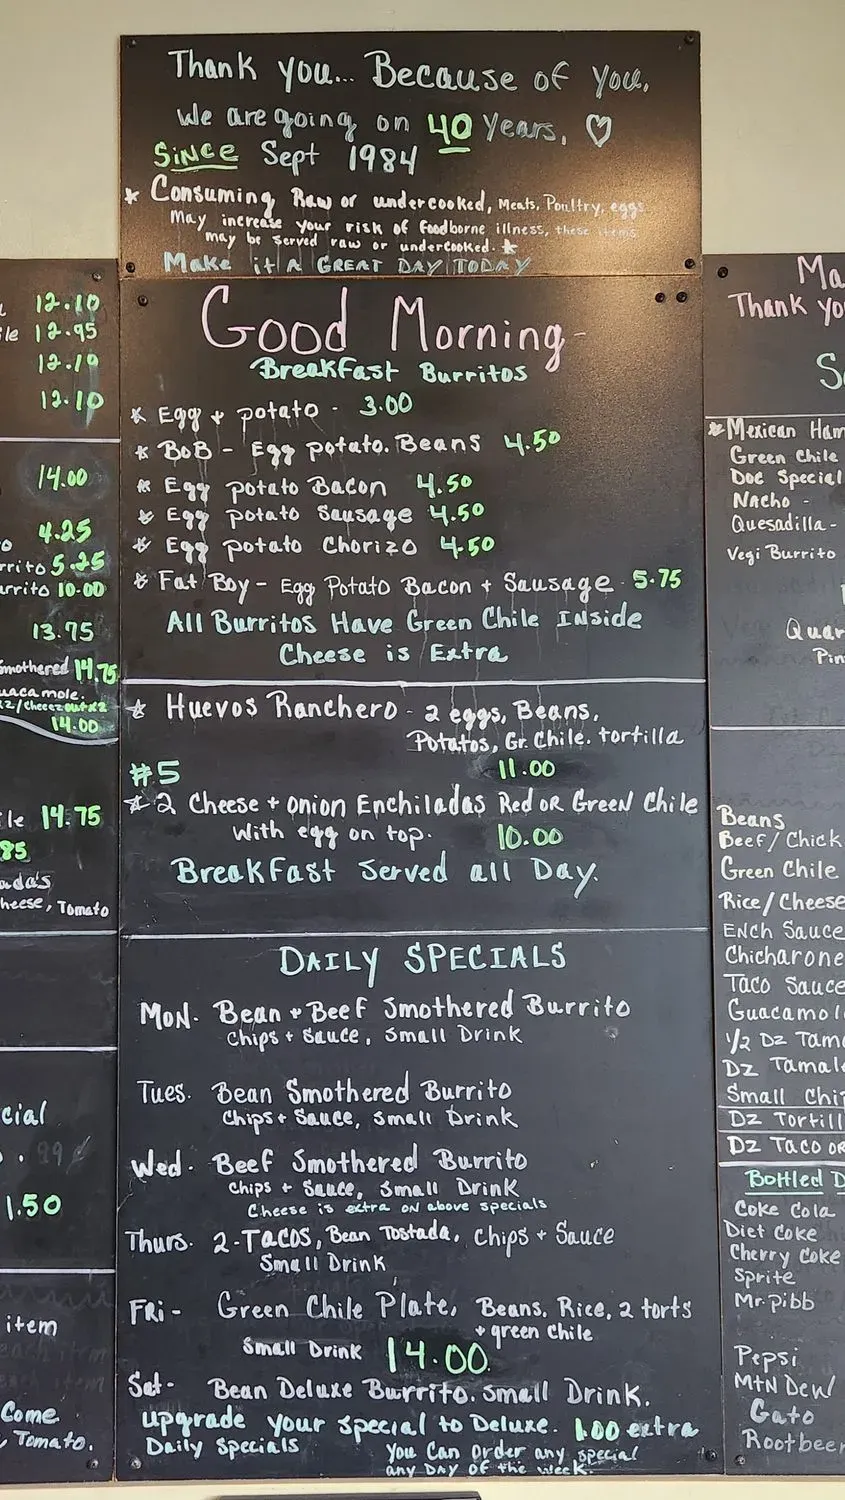 Thank you... Because of you,
we are going on 40 years. ♡
SINCE Sept 1984
* Consuming Raw or undercooked, Meats, Poultry, eggs
May increase your risk of foodborne illness, these items
may be served raw or undercooked. *
Make it A GREAT DAY TODAY
Good Morning-
BreakFast Burritos
* Egg + potato - 3.00
* BoB - Egg potato. Beans 4.50
* Egg potato Bacon 4.50
* Egg potato Sausage 4.50
* Egg potato Chorizo 4.50
* Fat Boy - Egg Potato Bacon + Sausage - 5.75
All Burritos Have Green Chile Inside
Cheese is Extra
* Huevos Ranchero - 2 eggs, Beans,
Potatos, Gr. Chile. tortilla
11.00
#5
* 2 Cheese + onion Enchiladas Red or Green Chile
With egg on top. 10.00
BreakFast Served all Day.
DAILY SPECIALS
Mon. Bean + Beef Smothered Burrito
Chips + Sauce, Small Drink
Tues. Bean Smothered Burrito
Chips + Sauce, Small Drink
Wed. Beef Smothered Burrito
Chips + Sauce, Small Drink
Cheese is extra on above specials
Thurs. 2-TACOS, Bean Tostada, Chips + Sauce
Small Drink
FRi - Green Chile Plate, Beans, Rice, 2 torts
+ green chile
Small Drink 14.00
Sat - Bean Deluxe Burrito. Small Drink.
upgrade your special to Deluxe. 1.00 extra
Daily Specials
you Can order any special
any DAY OF the week.
12.10
ile 12.95
12.10
12.10
14.00
4.25
rrito 5.25
urrito 10.00
13.75
smothered 14.75
uacamole.
14.00
le 14.75
85
ada's
heese, Tomato
cial
99¢
1.50
item
Come
Tomato.
Ma
Thank yo
S
* Mexican Ham
Green Chile
Doe Special
Nacho -
Quesadilla -
Vegi Burrito
Quar
Pin
Beans
Beef/Chick
Green Chile
Rice/Cheese
ENch Sauce
Chicharone
Taco Sauce
Guacamol
1/2 Dz Tam
Dz Tamal
Small Chi
Dz Tortill
Dz Taco or
Bottled D
Coke Cola
Diet Coke
Cherry Coke
Sprite
Mr. Pibb
Pepsi
MTN Dew
Gato
Rootbeer